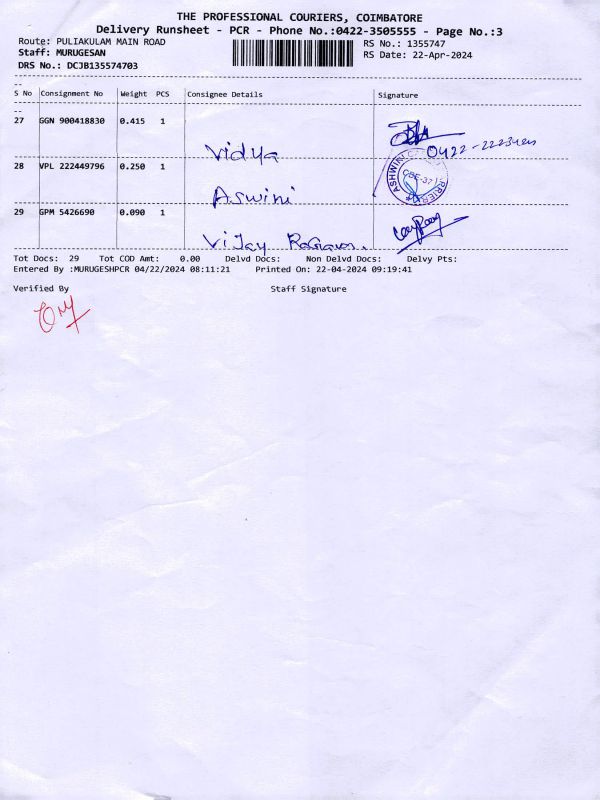 THE PROFESSIONAL COURIERS, COIMBATORE
Delivery Runsheet - PCR - Phone No.:0422-3505555 - Page No.:3
Route: PULIAKULAM MAIN ROAD
RS No.: 1355747
Staff: MURUGESAN
RS Date: 22-Apr-2024
DRS No.: DCJB135574703
S No Consignment No Weight PCS Consignee Details Signature
27 GGN 900418830 0.415 1
Vidya 0422-2223
28 VPL 222449796 0.250 1
Aswini ASHWINI CBE-37
29 GPM 5426690 0.090 1
Vijay
Tot Docs: 29 Tot COD Amt: 0.00 Delvd Docs: Non Delvd Docs: Delvy Pts:
Entered By :MURUGESHPCR 04/22/2024 08:11:21 Printed On: 22-04-2024 09:19:41
Verified By Staff Signature